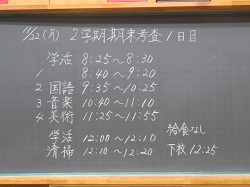 11/22(月) 2学期期末考査1日目
学活 8:25〜8:30
1 8:40〜9:20
2 国語 9:35〜10:25
3 音楽 10:40〜11:10
4 美術 11:25〜11:55
学活 12:00〜12:10 給食なし
清掃 12:10〜12:20 下校 12:25